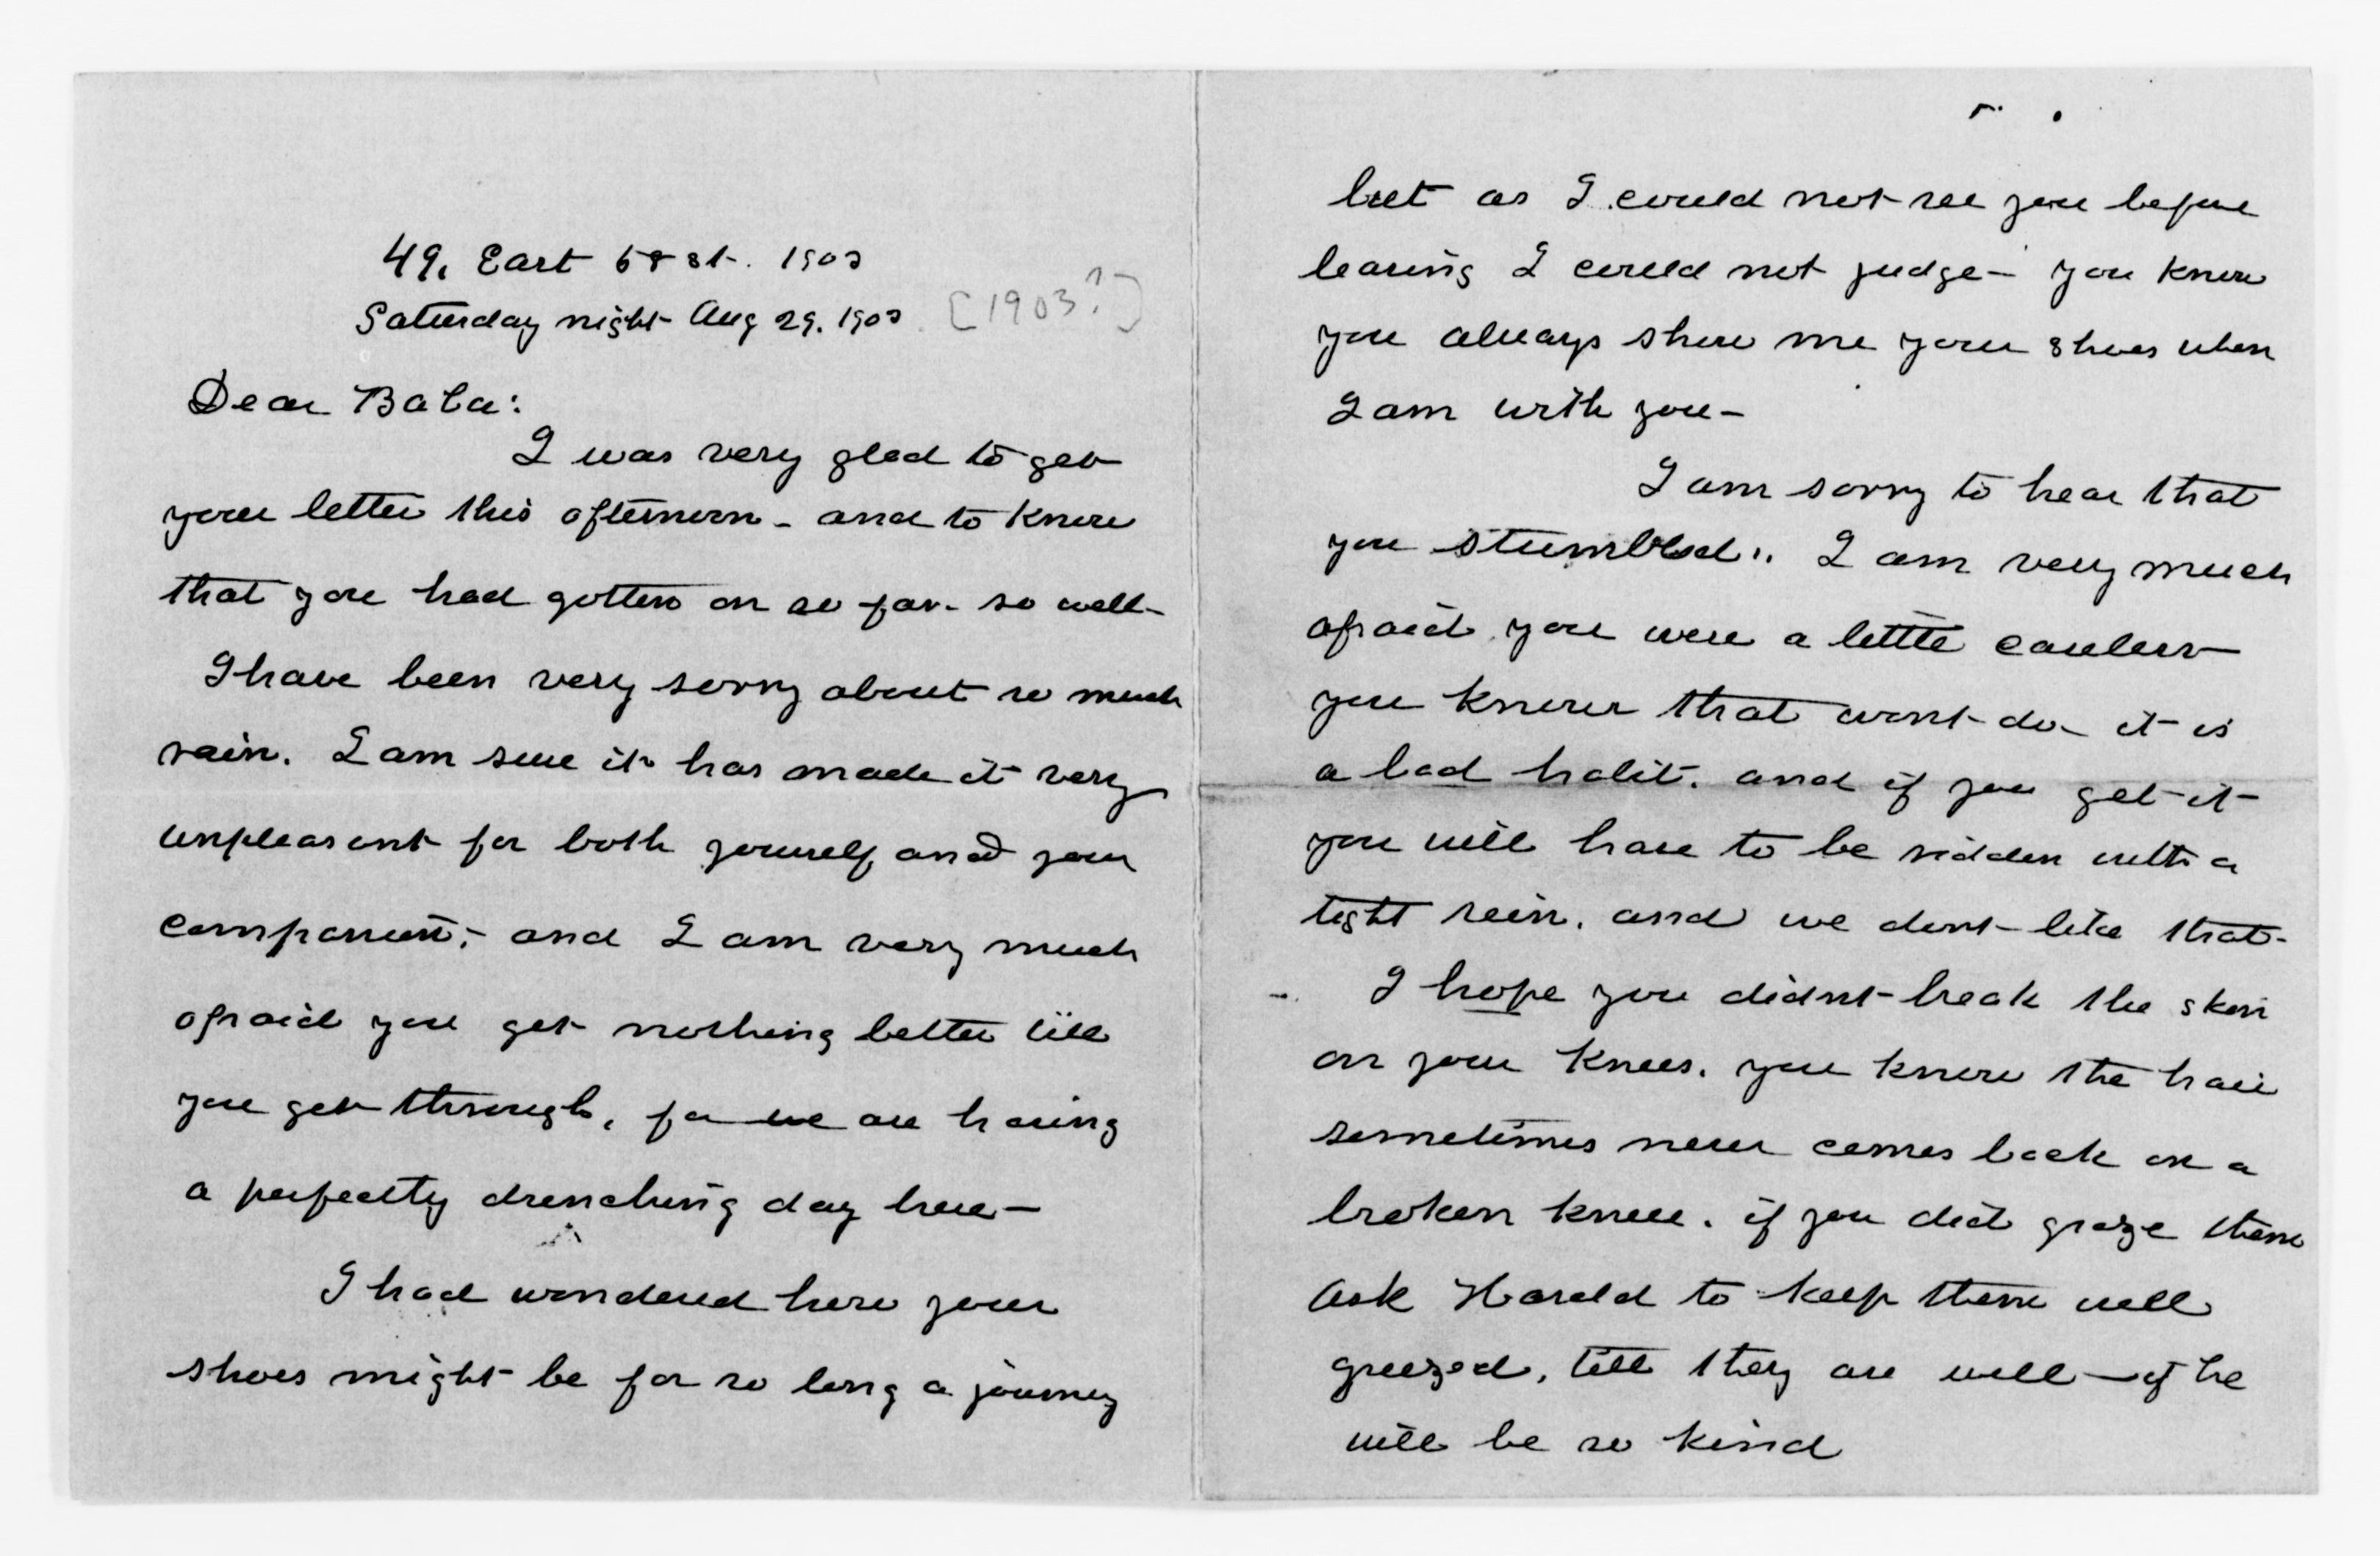 49. East 68 st. 1903
Saturday night Aug 29. 1903 [1903?]
Dear Baba:
I was very glad to get
your letter this afternoon - and to know
that you had gotten on so far - so well -
I have been very sorry about so much
rain. I am sure it has made it very
unpleasant for both yourself and your
companion; - and I am very much
afraid you get nothing better till
you get through, for we are having
a perfectly drenching day here -
I had wondered how your
shoes might be for so long a journey
but as I could not see you before
leaving I could not judge - you know
you always show me your shoes when
I am with you -
I am sorry to hear that
you stumbled.. I am very much
afraid you were a little careless -
you know that wont do - it is
a bad habit. and if you get it -
you will have to be ridden with a
tight rein. and we dont like that -
I hope you didnt break the skin
on your knees. you know the hair
sometimes never comes back on a
broken knee. if you did graze them
ask Harold to keep them well
greezed, till they are well - if he
will be so kind